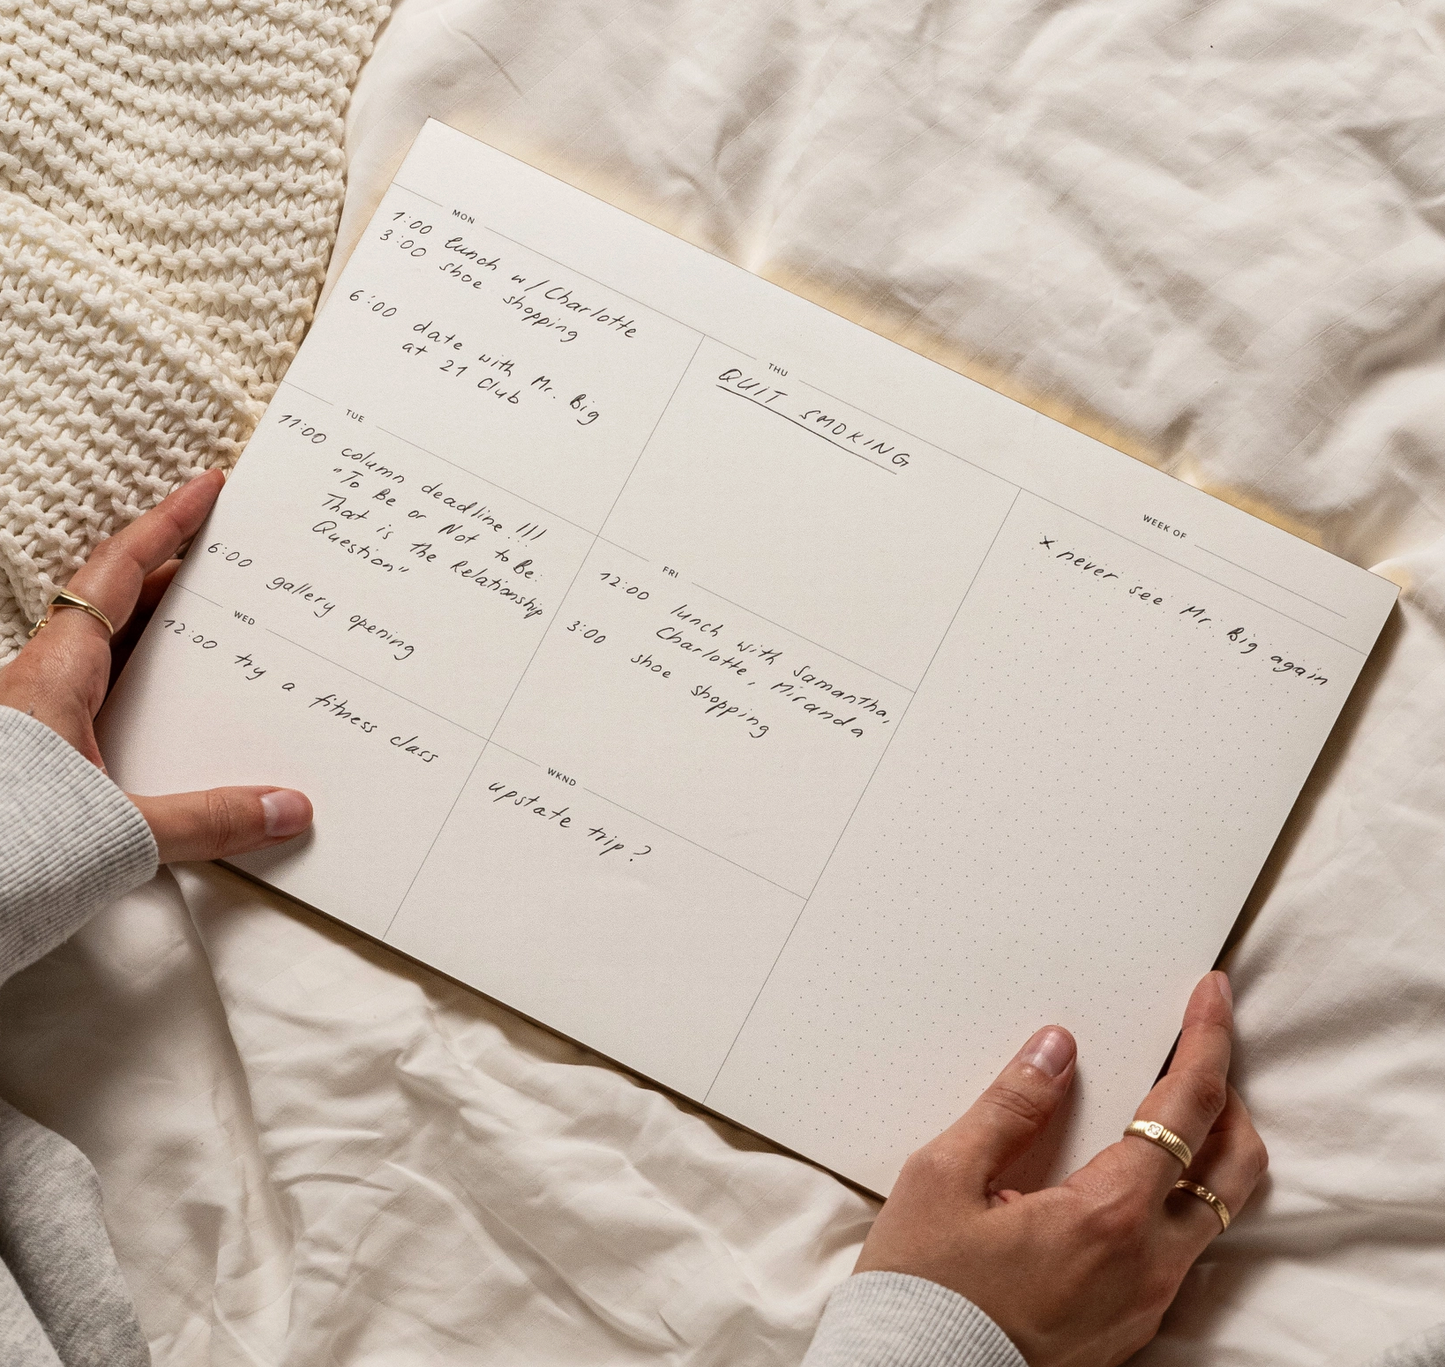 MON
1:00 lunch w/Charlotte
3:00 shoe shopping
6:00 date with Mr. Big
at 21 Club
TUE
11:00 column deadline!!!
"To Be or Not to Be:
That is the Relationship
Question"
6:00 gallery opening
WED
12:00 try a fitness class
THU
QUIT SMOKING
FRI
12:00 lunch with Samantha,
Charlotte, Miranda
3:00 shoe shopping
WKND
upstate trip?
WEEK OF
x never see Mr. Big again